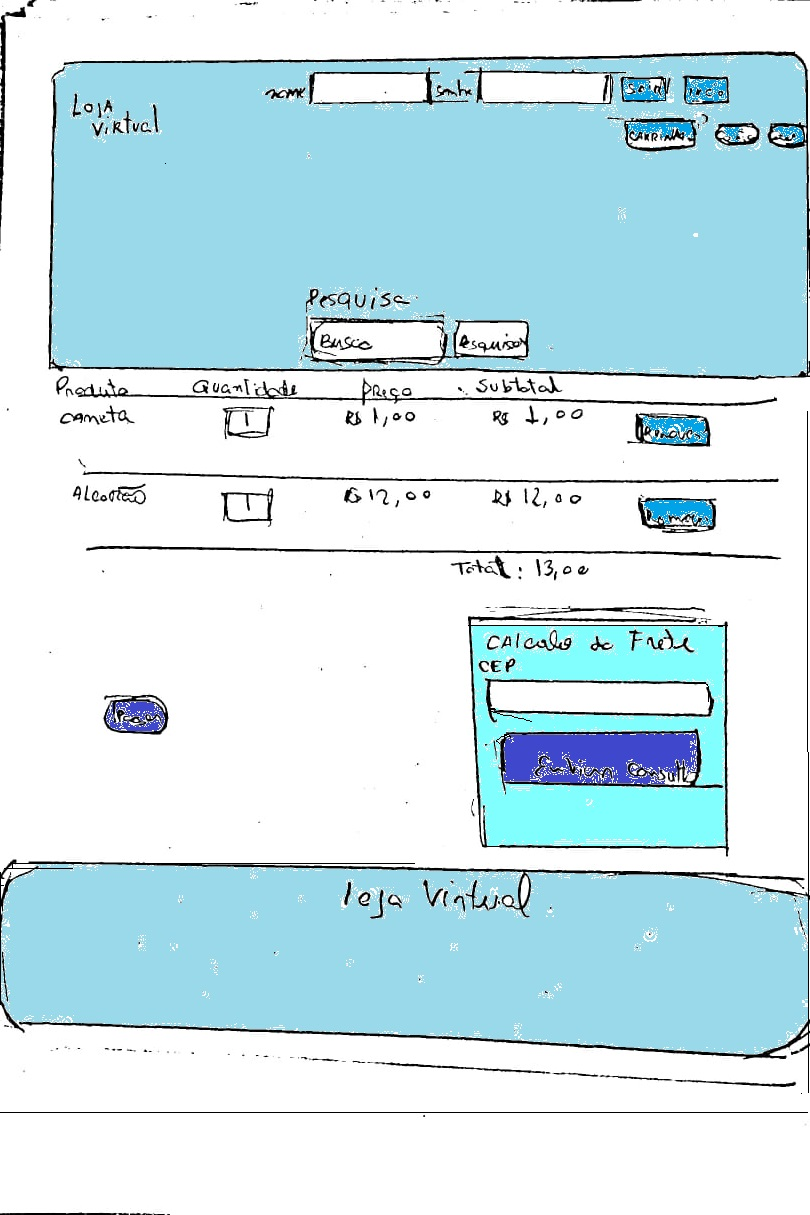 nome senha SAIR
LOJA
Virtual
CARRINHO
Pesquisa
Busca Pesquisar
Produto Quantidade Preço Subtotal
caneta 1 R$ 1,00 R$ 1,00 Remover
Alcorão 1 R$ 12,00 R$ 12,00 Remover
Total: 13,00
CAlculo do Frete
CEP
Enbiar Consulta
loja Virtual